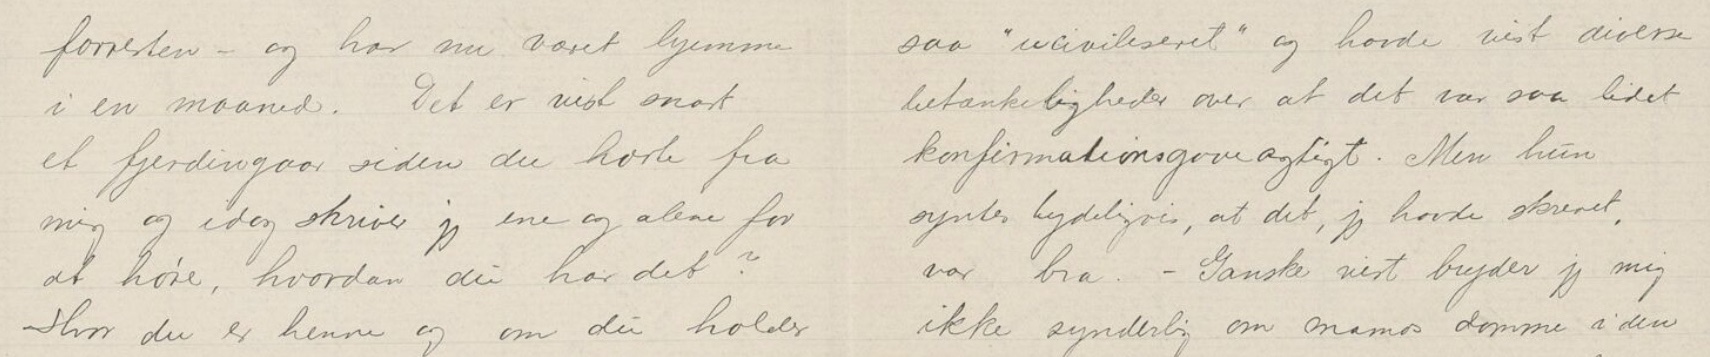 forresten – og har nu været hjemme
i en maaned. Det er vist snart
et fjerdingaar siden du hørte fra
mig og idag skriver jeg ene og alene for
at høre, hvordan du har det?
Hvor du er henne og om du holder
saa "uciviliseret" og havde vist diverse
betænkeligheder over at det var saa lidet
konfirmationsgaveagtigt. Men hun
syntes tydeligvis, at det, jeg havde skrevet,
var bra. – Ganske vist bryder jeg mig
ikke synderlig om mamas domme i den